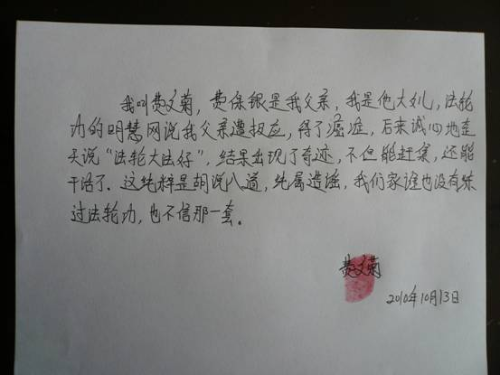 我叫费文菊，费保银是我父亲，我是他大女儿，法轮
功的明慧网说我父亲遭报应，得了癌症，后来诚心地
天天说“法轮大法好”，结果出现了奇迹，不但能赶集，还能
干活了。这纯粹是胡说八道，纯属造谣，我们家谁也没有练
过法轮功，也不信那一套。
费文菊
2010年10月13日